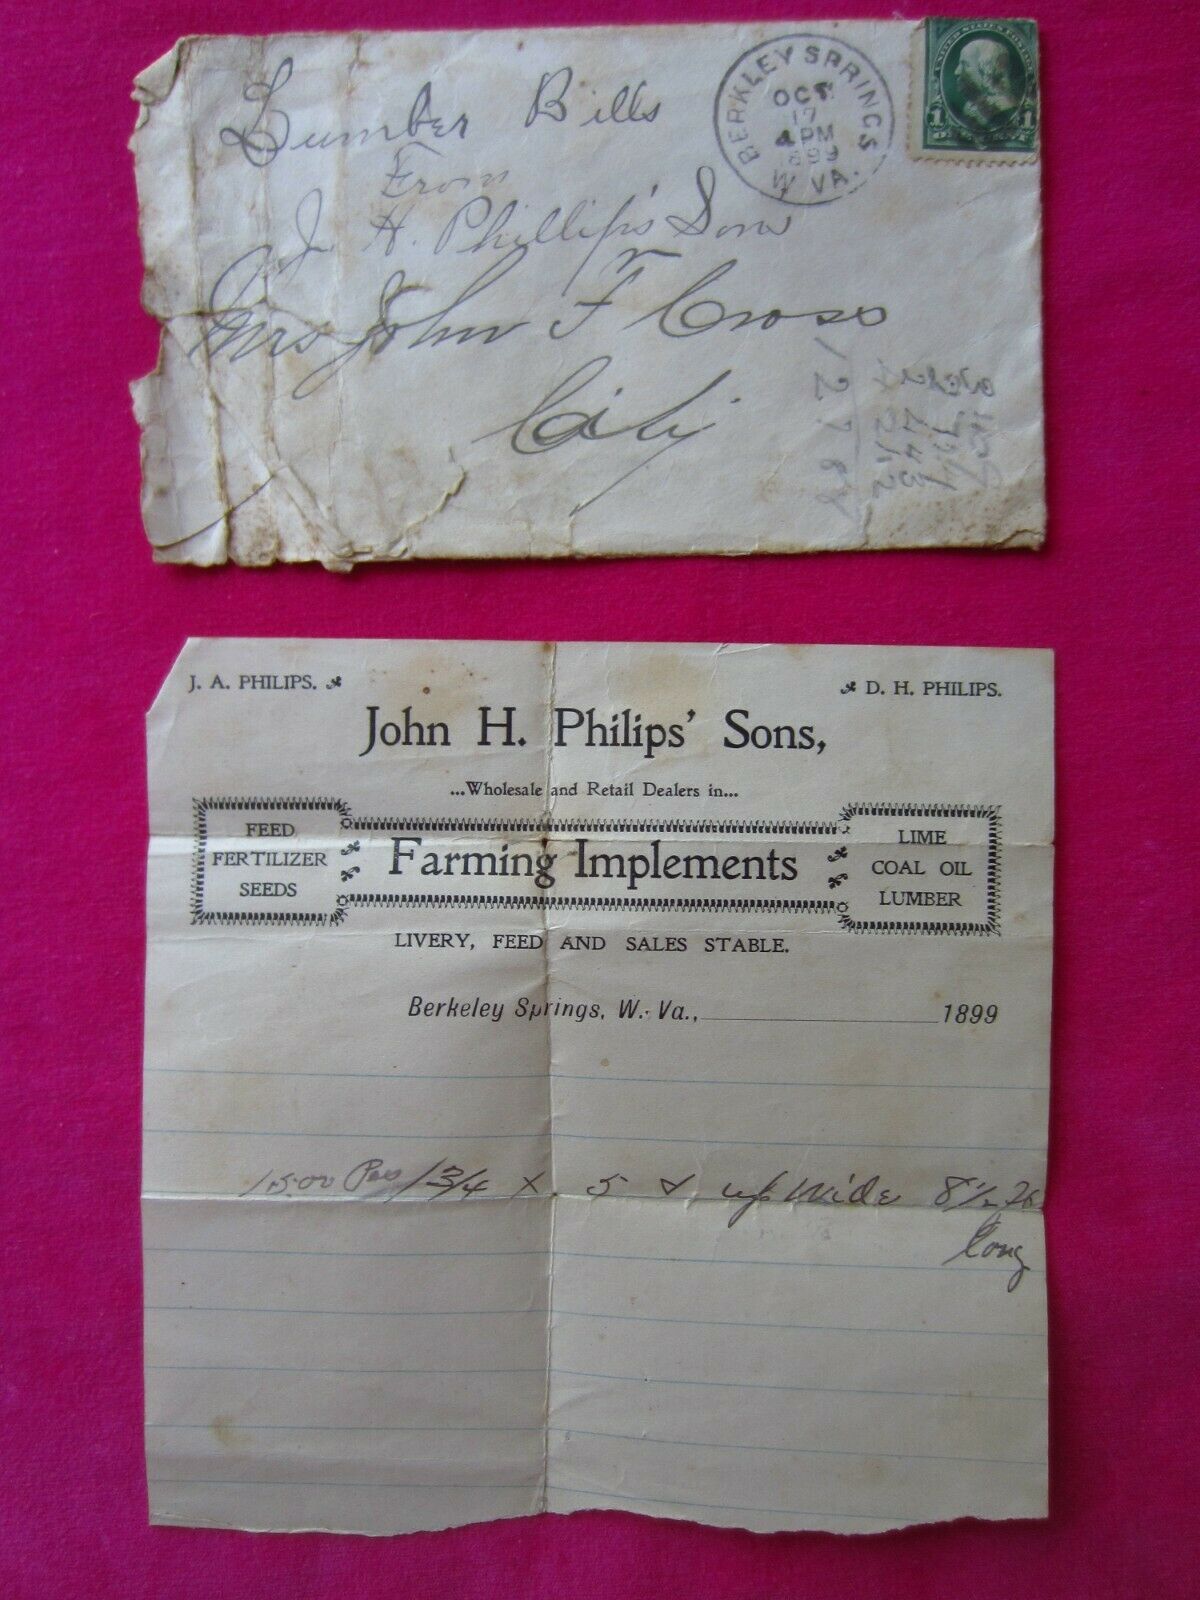 Lumber Bills
From
J H. Phillip's Sons
Mrs John F Cross
City
BERKLEY SPRINGS
OCT
17
4 PM
1899
W VA.
1 ONE CENT 1
J. A. PHILIPS.
D. H. PHILIPS.
John H. Philips' Sons,
...Wholesale and Retail Dealers in...
FEED
FERTILIZER
SEEDS
Farming Implements
LIME
COAL OIL
LUMBER
LIVERY, FEED AND SALES STABLE.
Berkeley Springs, W. Va., 1899
1500 Pcs 1 3/4 x 5 & up Wide 8 1/2 ft
long